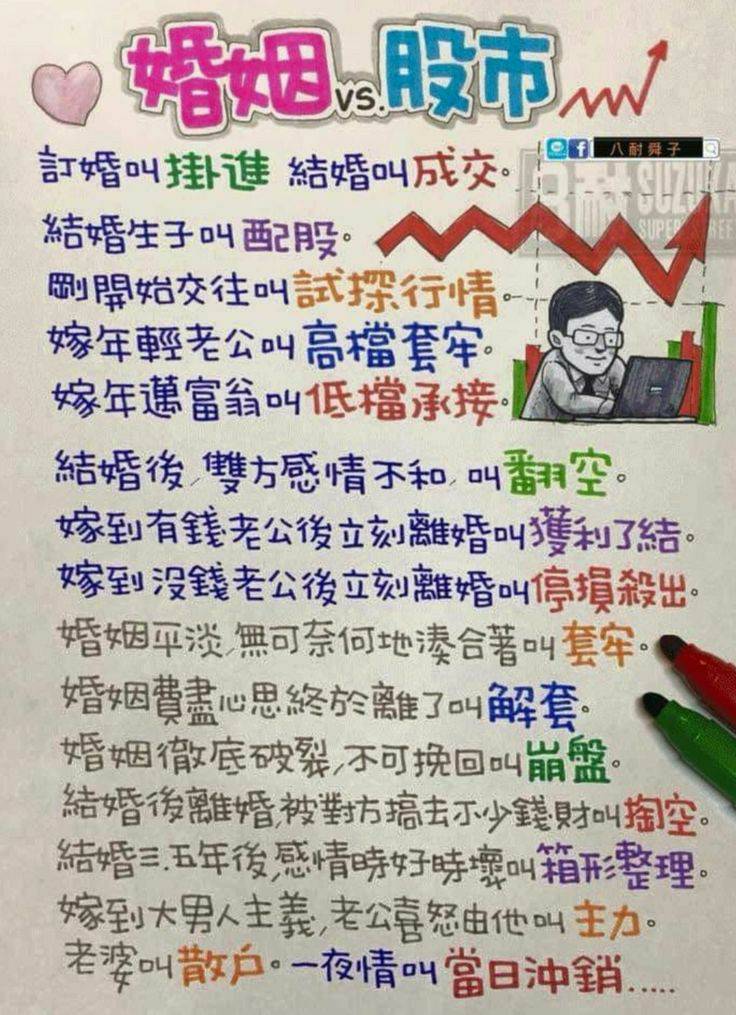 婚姻vs.股市
八耐舜子
訂婚叫掛進 結婚叫成交。
SUZUKA
結婚生子叫配股。
剛開始交往叫試探行情。
嫁年輕老公叫高檔套牢。
嫁年邁富翁叫低檔承接。
結婚後,雙方感情不和,叫翻空。
嫁到有錢老公後立刻離婚叫獲利了結。
嫁到沒錢老公後立刻離婚叫停損殺出。
婚姻平淡,無可奈何地湊合著叫套牢。
婚姻費盡心思終於離了叫解套。
婚姻徹底破裂,不可挽回叫崩盤。
結婚後離婚,被對方搞去不少錢財叫掏空。
結婚三.五年後,感情時好時壞叫箱形整理。
嫁到大男人主義,老公喜怒由他叫主力。
老婆叫散戶。一夜情叫當日沖銷.....